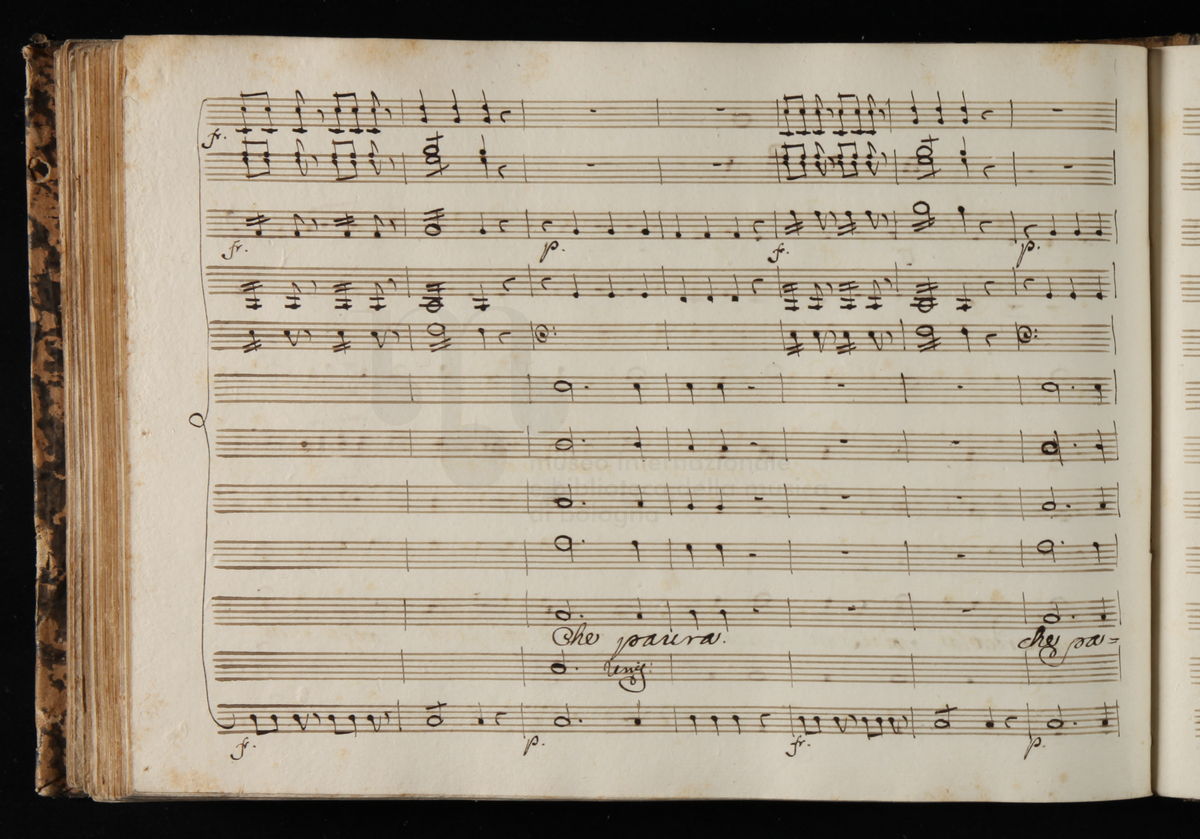 fr.
fr. p. f. p.
museo internazionale
e biblioteca della musica
di bologna
Che paura. che pa=
Unis:
fr. p. fr. p.